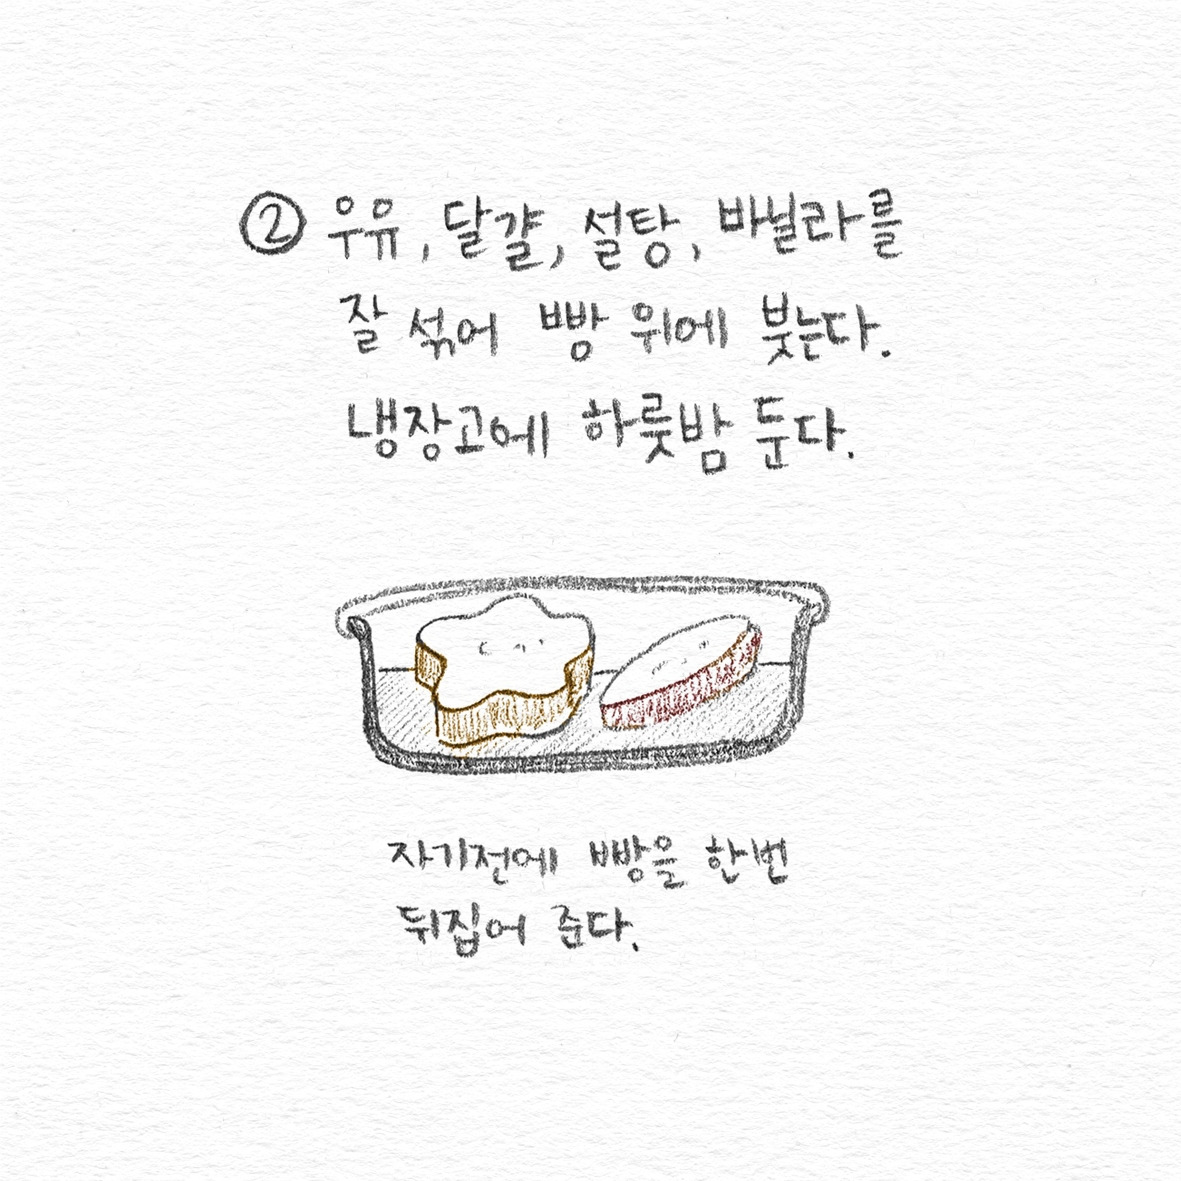 ② 우유, 달걀, 설탕, 바닐라를
잘 섞어 빵 위에 붓는다.
냉장고에 하룻밤 둔다.
자기전에 빵을 한번
뒤집어 준다.